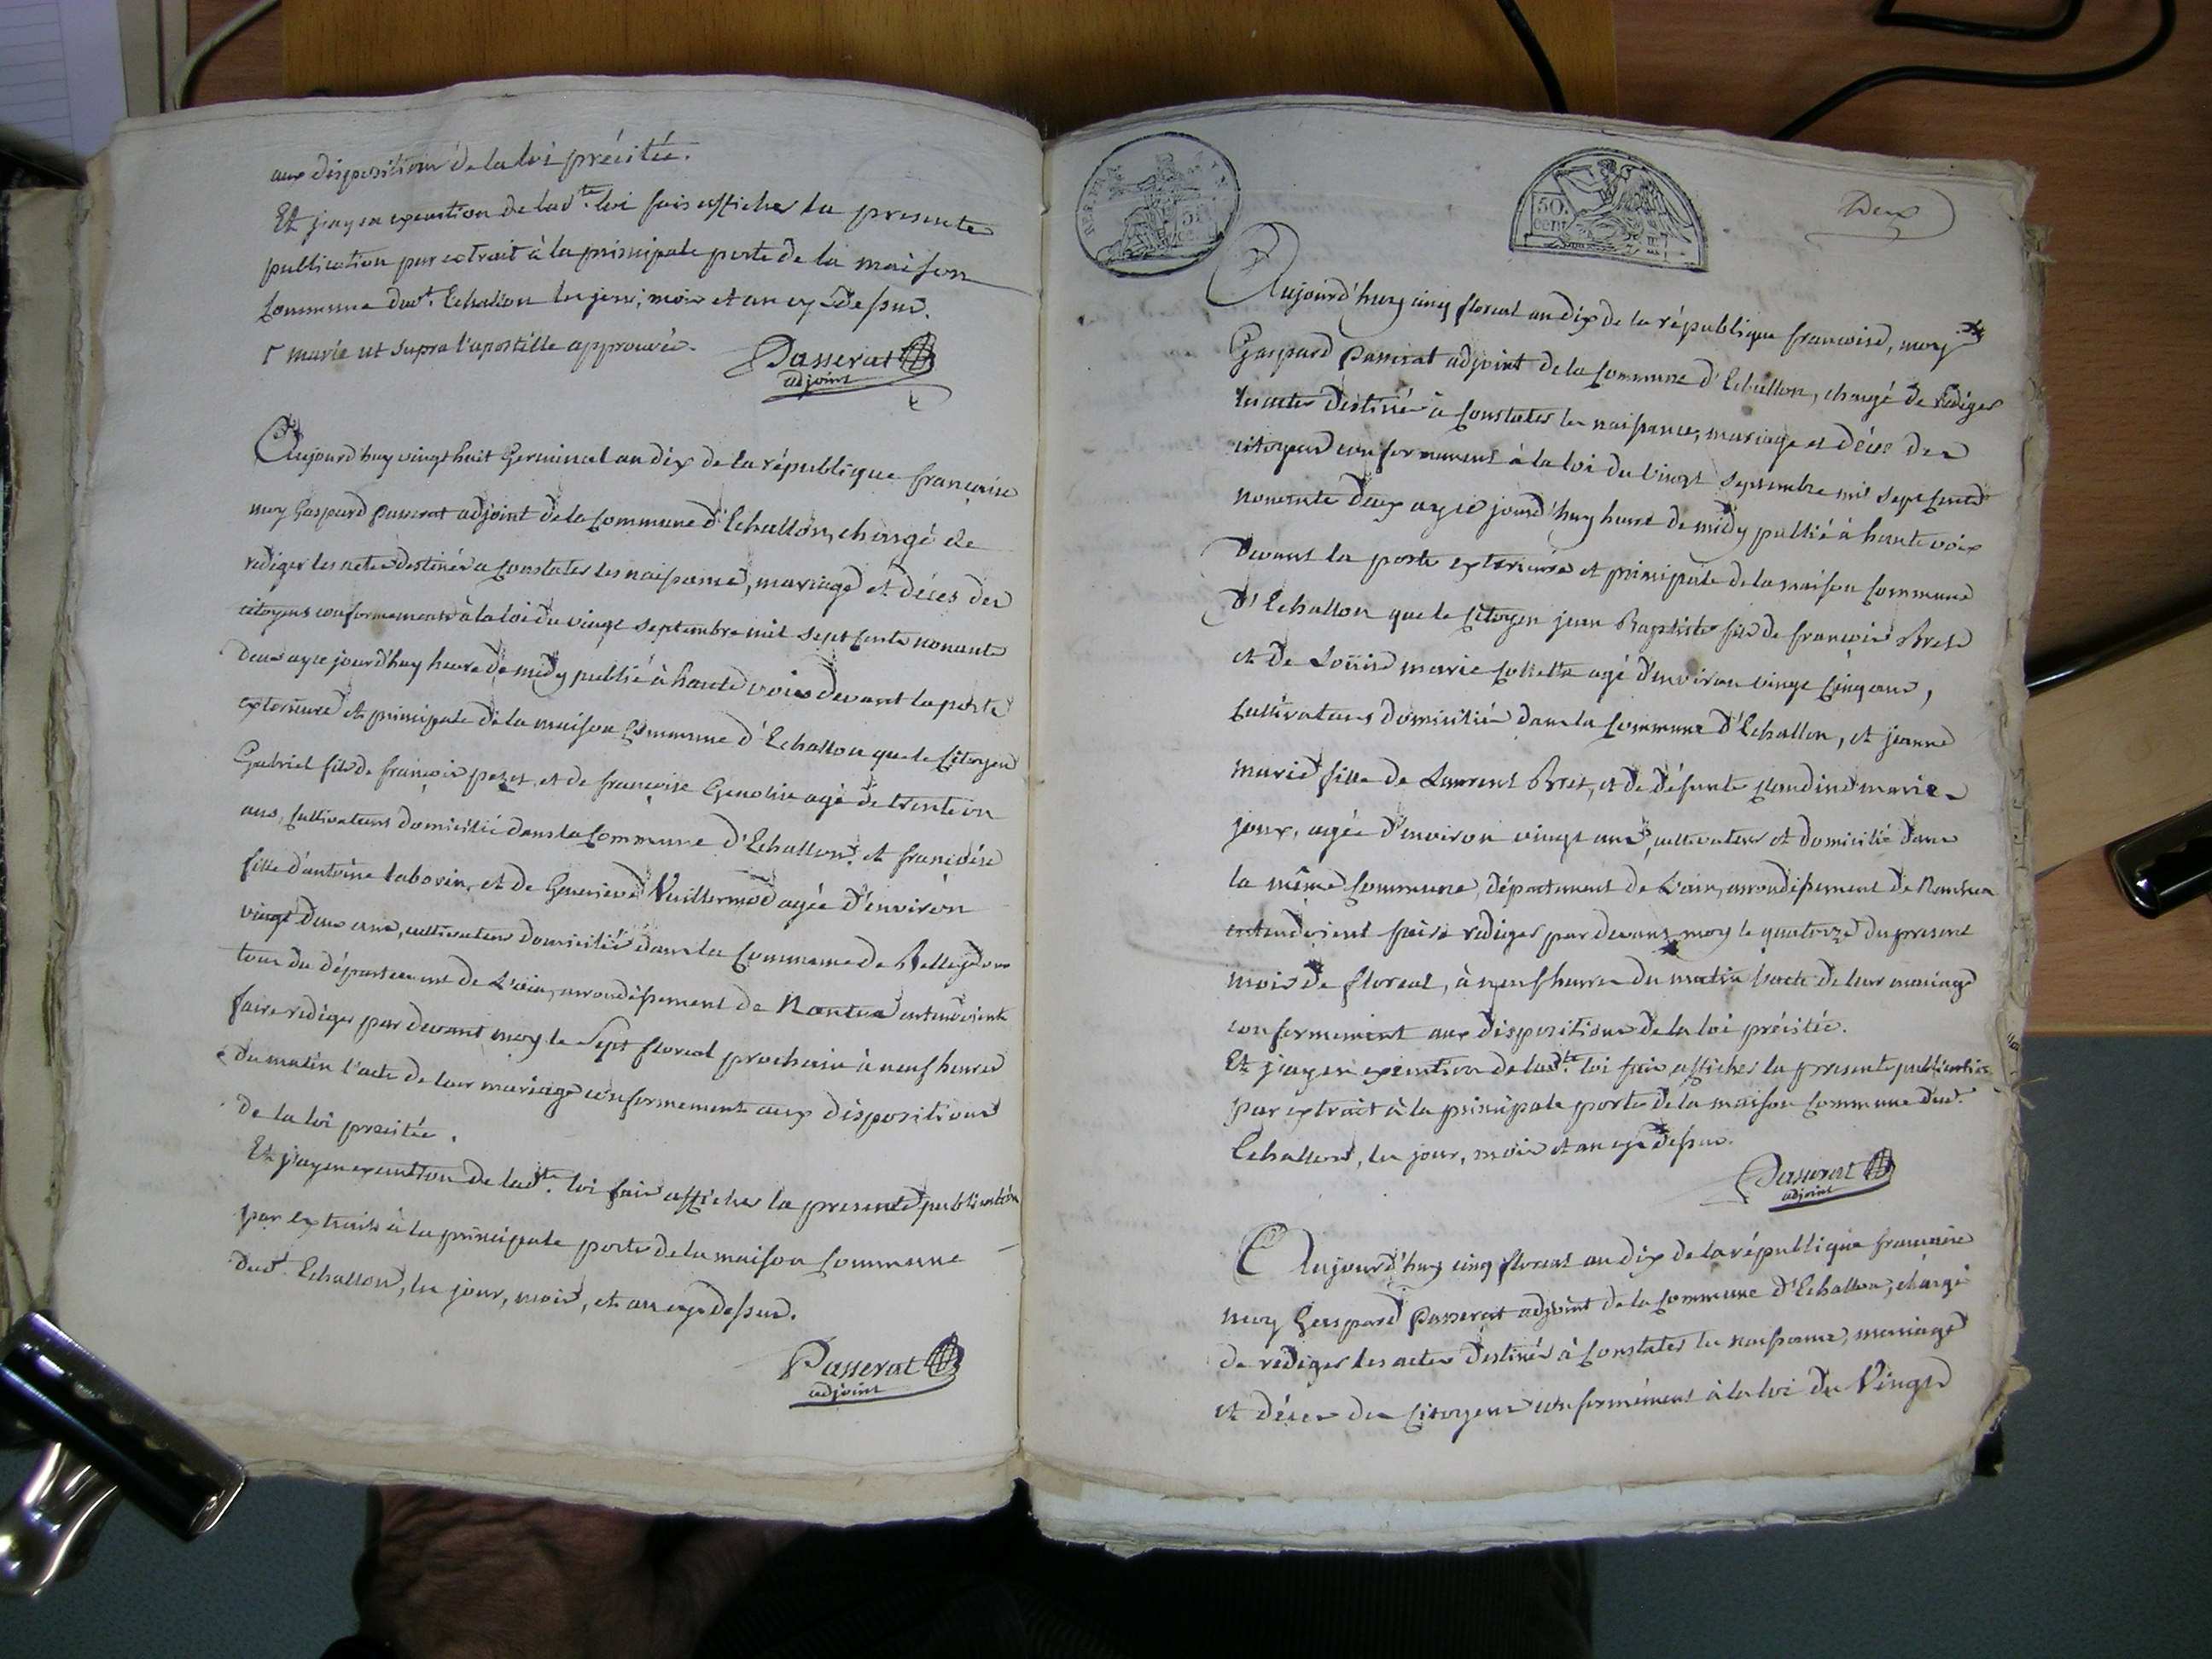 aux dispositions de la loi précitée.
Et j'ay en execution de lad.te loi fais afficher la presente
publication par extrait à la principale porte de la maison
Commune dud.t Echallon les jour, mois et an cy dessus.
marie ut supra l'apostille approuvée.
Passerat
adjoint
Aujourd'huy vingt huit Germinal an dix de la république françoise
moy Gaspard Passerat adjoint de la Commune d'Echallon, chargé de
rediger les actes destinés a Constater les naissance, mariage et décès des
citoyens conformement à la loi du vingt septembre mil sept cents nonante
deux ay ce jourd'huy heure de midy publié à haute voix devant la porte
exterieure et principale de la maison Commune d'Echallon que le Citoyen
Gabriel fils de françois pezet, et de françoise Genolin agé de trente un
ans, Cultivateurs domicilié dans la Commune d'Echallon, et françoise
fille d'antoine taborin, et de Genevieve Vuillermod agée d'environ
vingt deux ans, cultivateur domiciliée dans la Commune de Belleydoux
tous du département de L'ain, arrondissement de Nantua entendoient
faire rediger par devant moy le Sept floreal prochain à neuf heures
du matin l'acte de leur mariage conformement aux dispositions
de la loi precitée.
Et j'ay en execution de lad.te loi fais afficher la presente publication
par extrait à la principale porte de la maison Commune
dud.t Echallon, les jour, mois, et an cy dessus.
Passerat
adjoint
RÉP. FRA.
50
cent
Deux
Aujourd'huy cinq floreal an dix de la république francoise, moy
Gaspard Passerat adjoint de la Commune d'Echallon, chargé de rediger
les actes destinés à Constater les naissance, mariage et décès des
citoyens conformement à la loi du Vingt septembre mil sept cents
nonante deux ay ce jourd'huy heure de midy publié à haute voix
devant la porte exterieure et principale de la maison Commune
d'Echallon que le Citoyen jean Baptiste fils de françois Bret
et de Loüise marie Collette agé d'environ vingt cinq ans,
Cultivateurs domicilié dans la Commune d'Echallon, et jeanne
marie fille de Laurent Bret, et de défunte Claudine marie
joux, agée d'environ vingt ans, cultivateur et domicilié dans
la même Commune, département de L'ain, arrondissement de Nantua
entendoient faire rediger par devant moy le quatorze du present
mois de floreal, à neuf heures du matin l'acte de leur mariage
conformement aux dispositions de la loi précitée.
Et j'ay en execution de lad.te loi fais afficher la presente publication
par extrait à la principale porte de la maison Commune dud.t
Echallon, les jour, mois et an cy dessus.
Passerat
adjoint
Aujourd'huy cinq floreal an dix de la république francoise
moy Gaspard Passerat adjoint de la Commune d'Echallon, chargé
de rediger les actes destinés à Constater les naissance, mariage
et décès des Citoyens conformément à la loi du Vingt